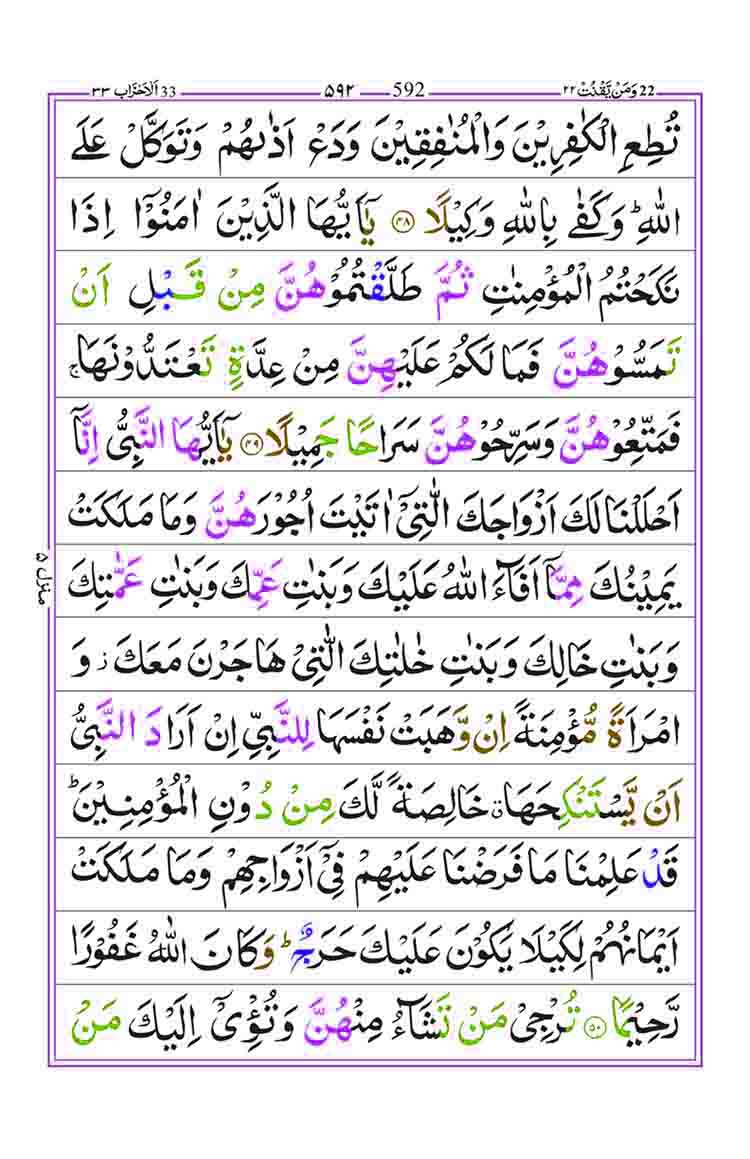 22 وَمَنْ يَّقْنُتْ ٢٢ 592 ۵۹۲ 33 اَلْاَحْزَاب ٣٣
تُطِعِ الْكٰفِرِيْنَ وَالْمُنٰفِقِيْنَ وَدَعْ اَذٰىهُمْ وَتَوَكَّلْ عَلَى
اللّٰهِ ؕ وَكَفٰى بِاللّٰهِ وَكِيْلًا ۴۸ يٰۤاَيُّهَا الَّذِيْنَ اٰمَنُوْۤا اِذَا
نَكَحْتُمُ الْمُؤْمِنٰتِ ثُمَّ طَلَّقْتُمُوْهُنَّ مِنْ قَبْلِ اَنْ
تَمَسُّوْهُنَّ فَمَا لَكُمْ عَلَيْهِنَّ مِنْ عِدَّةٍ تَعْتَدُّوْنَهَا ۚ
فَمَتِّعُوْهُنَّ وَسَرِّحُوْهُنَّ سَرَاحًا جَمِيْلًا ۴۹ يٰۤاَيُّهَا النَّبِىُّ اِنَّاۤ
اَحْلَلْنَا لَكَ اَزْوَاجَكَ الّٰتِىْۤ اٰتَيْتَ اُجُوْرَهُنَّ وَمَا مَلَكَتْ
يَمِيْنُكَ مِمَّاۤ اَفَآءَ اللّٰهُ عَلَيْكَ وَبَنٰتِ عَمِّكَ وَبَنٰتِ عَمّٰتِكَ
وَبَنٰتِ خَالِكَ وَبَنٰتِ خٰلٰتِكَ الّٰتِىْ هَاجَرْنَ مَعَكَ ز وَ
امْرَاَةً مُّؤْمِنَةً اِنْ وَّهَبَتْ نَفْسَهَا لِلنَّبِىِّ اِنْ اَرَادَ النَّبِىُّ
اَنْ يَّسْتَنْكِحَهَا ق خَالِصَةً لَّكَ مِنْ دُوْنِ الْمُؤْمِنِيْنَ ؕ
قَدْ عَلِمْنَا مَا فَرَضْنَا عَلَيْهِمْ فِىْۤ اَزْوَاجِهِمْ وَمَا مَلَكَتْ
اَيْمَانُهُمْ لِكَيْلَا يَكُوْنَ عَلَيْكَ حَرَجٌ ؕ وَكَانَ اللّٰهُ غَفُوْرًا
رَّحِيْمًا ۵۰ تُرْجِىْ مَنْ تَشَآءُ مِنْهُنَّ وَتُؤْىْۤ اِلَيْكَ مَنْ
منزل ۵